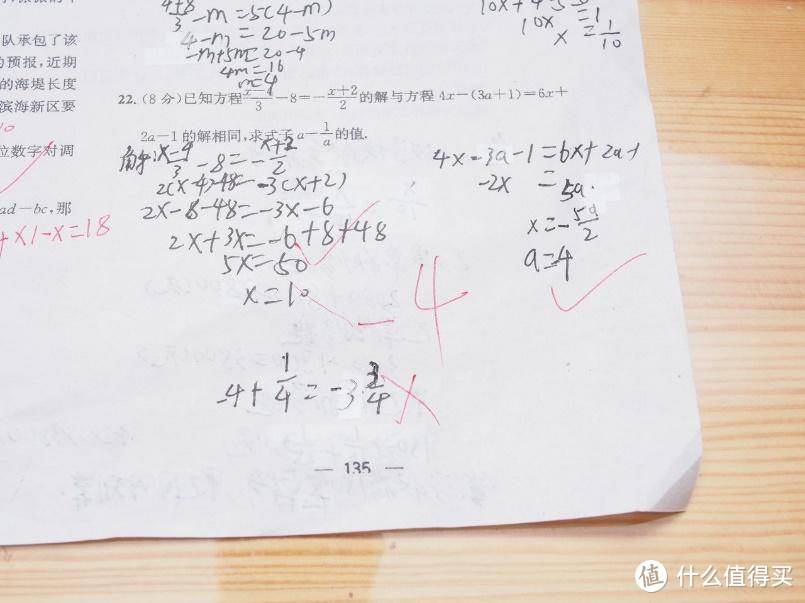 队承包了该
的预报,近期
的海堤长度
滨海新区要
位数字对调
ad-bc,那
+x1-x=18
-m=5(4-m)
4-m=20-5m
-m+5m=20-4
4m=16
m=4
10x=1
x=1/10
22.(8分)已知方程(x-4)/3-8=-(x+2)/2的解与方程4x-(3a+1)=6x+
2a-1的解相同,求式子a-1/a的值.
解:(x-4)/3-8=-(x+2)/2
2(x-4)-48=-3(x+2)
2x-8-48=-3x-6
2x+3x=-6+8+48
5x=50
x=10
4x-3a-1=6x+2a-1
-2x=5a.
x=-5a/2
a=4
-4
-4+1/4=-3 3/4
— 135 —
值 什么值得买